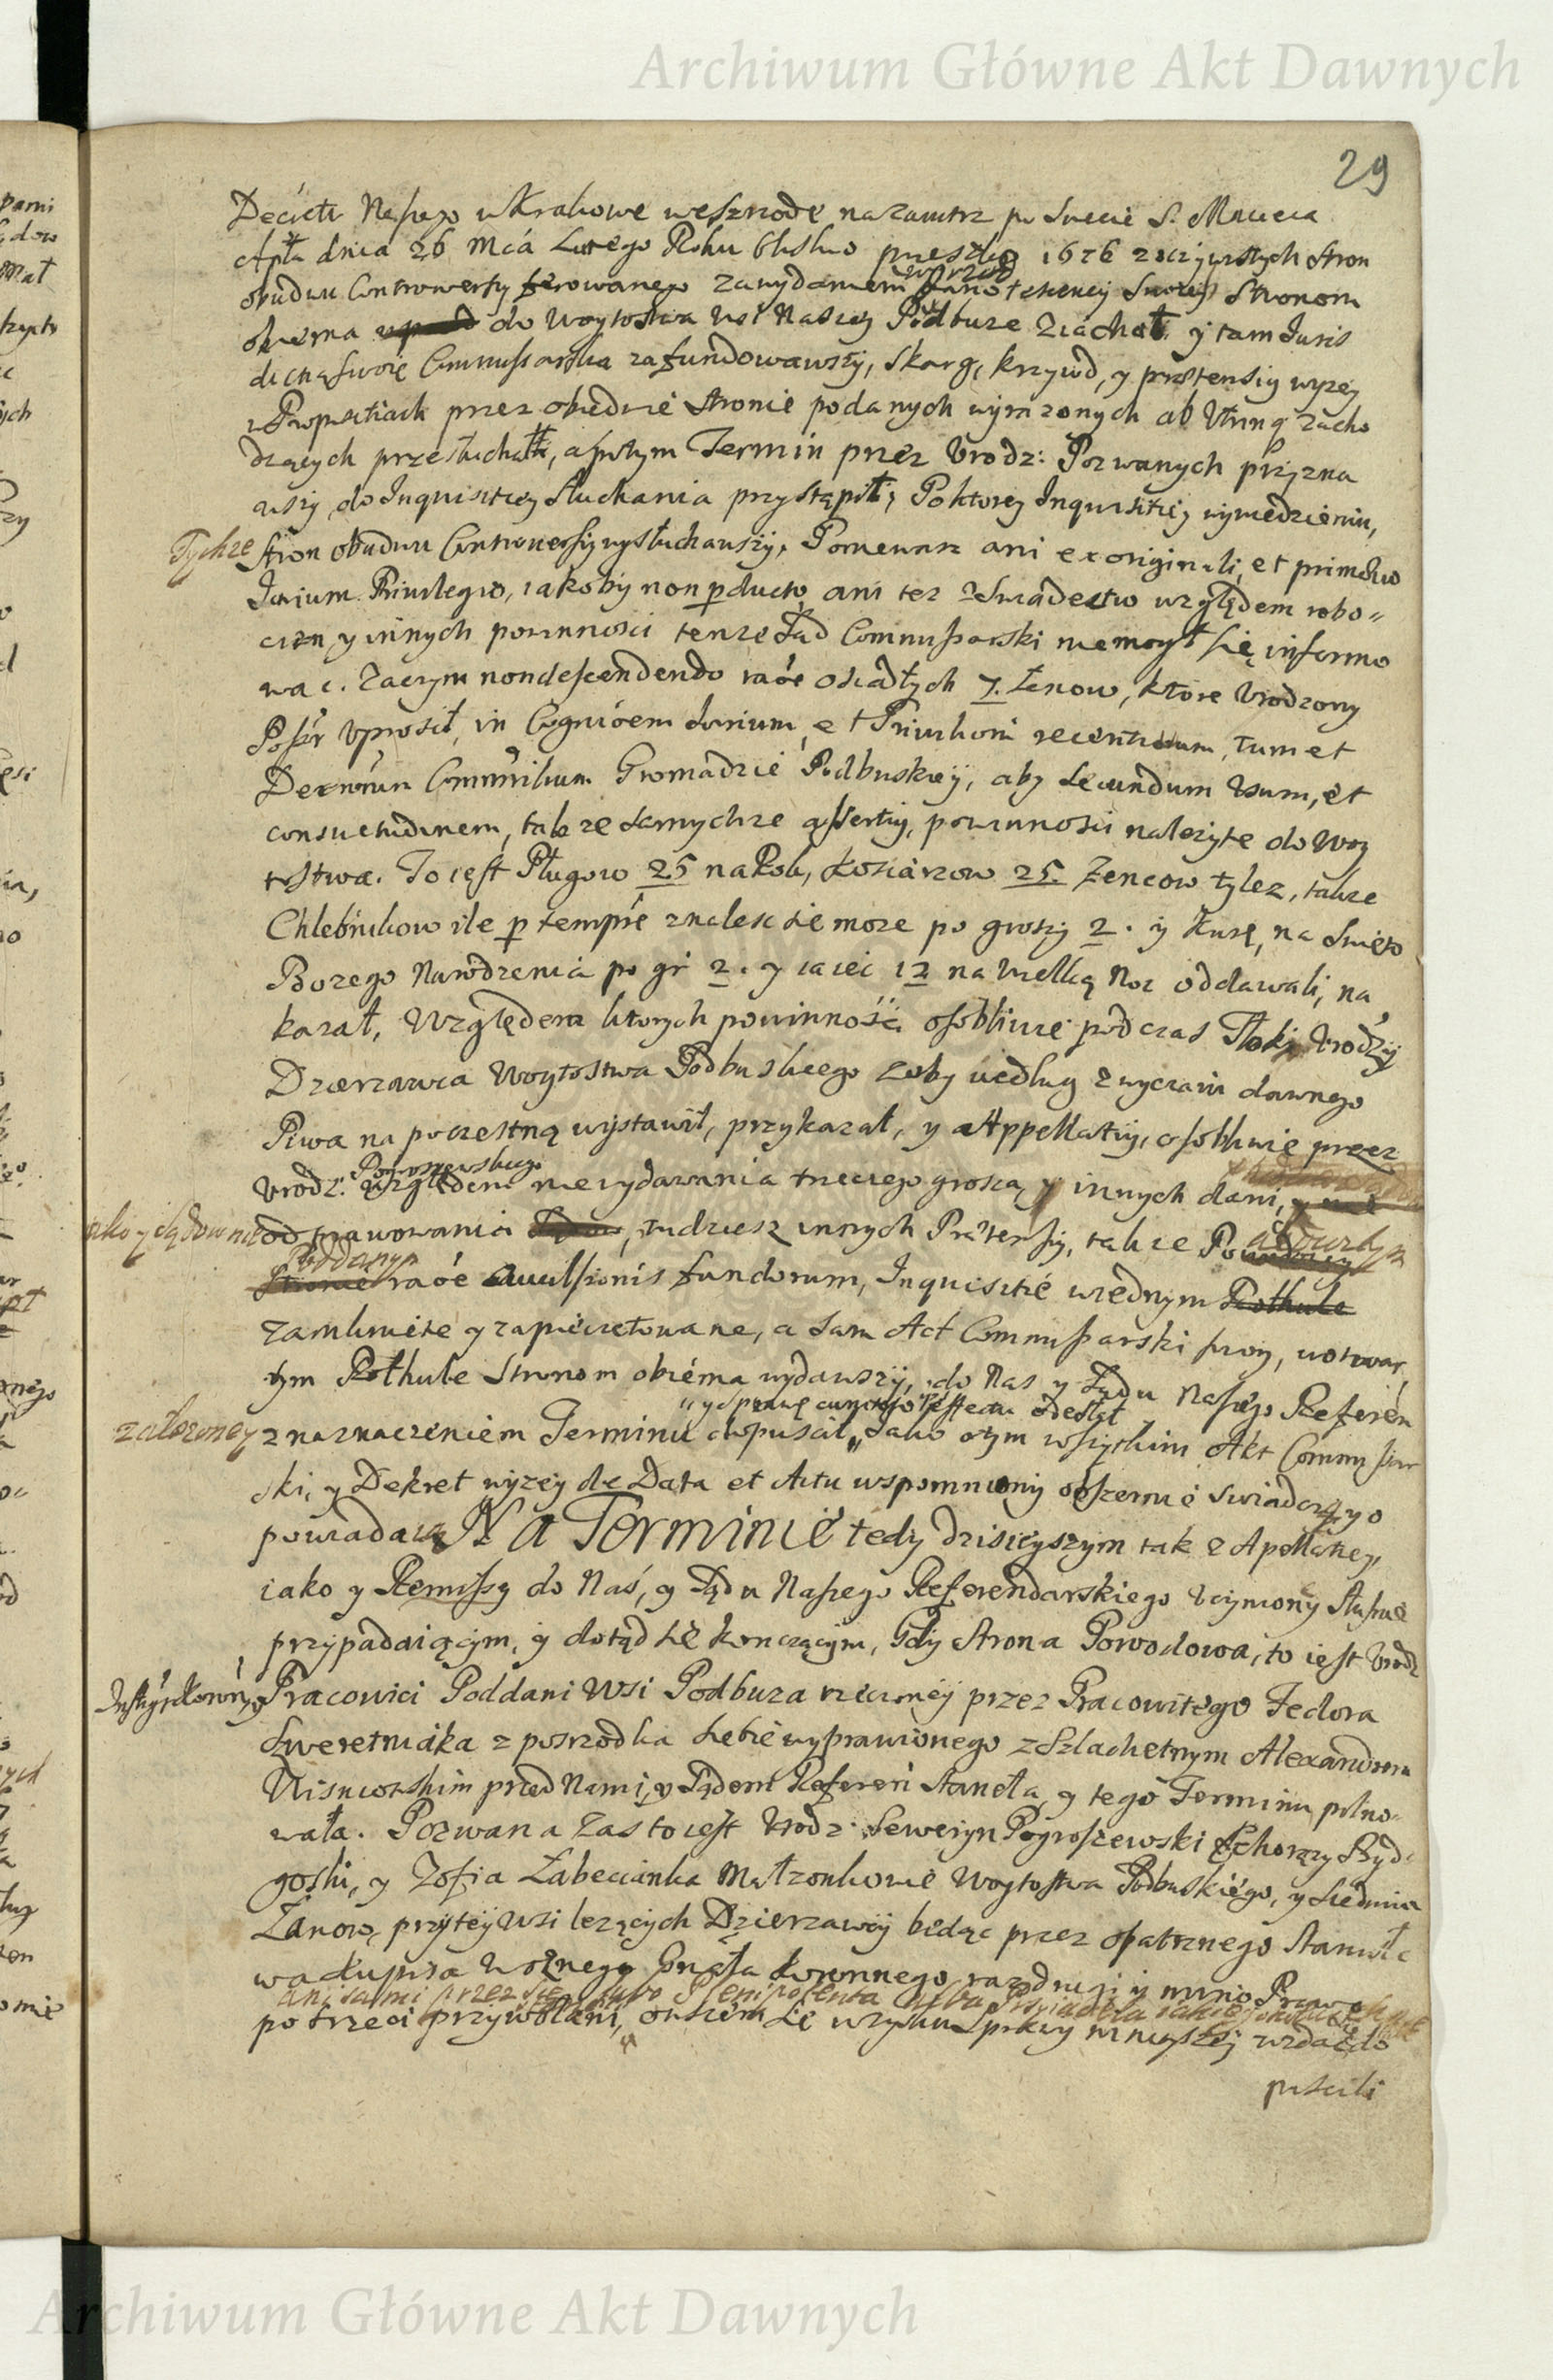 Archiwum Główne Akt Dawnych
29
Decretu Naszego w Krakowie weszrzodę nazaiutrz po Swiecie S. Macieia
Apła dnia 26 Mca Lutego Roku blisko przeszłego 1676 z oczywistych stron
obudwu Controwersy ferowanego zawydaniem wprzod Innotescency Swoiey Stronom
obiema do Woytostwa Wsi Naszey Podbuze ziachał y tam Iuris
dictią swoię Commissarska zafundowawszy, skarg, krzywd, y praetensiy wyzey
w Propositiach przez obiedwie stronie podanych wyrazonych ab Utrinq zacho
dzących przesłuchał, apotym Termin przez Urodz: Pozwanych przyzna
wszy do Inquisitiey słuchania przystąpił, Poktorey Inquisitiey wywiedzieniu,
Tychze stron obudwu Controwersiy wysłuchawszy, Poniewasz ani ex originali et primaevo
Iurium Priuilegio, iakoby non producto, ani tez z Swiadectw względem robo-
cizn y innych powinnosci tenze Sąd Commissarski niemogł się informo
wac. Zaczym nondescendendo raõe osiadłych 7. Łanow, które Urodzony
Possr Uprosił, in Cognicoem Iurium, et Priuileior recentiorum, tum et
Decretorum Commissarialium Gromadzie Podbuskiey, aby secundum Usum, et
consuetudinem, takze samychze assertiy, powinnosci nalezyte do Woy
tostwa. To iest Pługow 25 na Rok, Kosiarzow 25 Zencow tylez, takze
Chlebnikow ile p tempore znalesc sie moze po groszy 2. y kurę, na swięto
Bozego Narodzenia po gr 2. y iaiec 12 na Wielką Noc oddawali, na
kazał, Względem ktorych powinności osobliwie podczas Tłoki Urodzy
Dzierzawca Woytostwa Podbuskiego zeby według zwyczaiu dawnego
Piwa na poczestną wystawił, przykazał, y Appellatiy, osobliwie przez
Urodz. Pogroszewskiego względem niewydawania trzeciego grosza y innych dani,
iako y Sądownie odprawowania, tudziesz innych Praetensiy, takze
Poddanym raõe auulsionis fundorum, Inquisitie wiednym Rothule
zamkniete y zapieczetowane, a sam Act Commissarski swoy, wotwar
tym Rothule Stronom obiema wydawszy, do Nas y Sądu Naszego Referen
załozoney z naznaczeniem Terminu dopuscił „y sprawę całą do effectu odesłał„ Iako otym wszystkim Akt Commissar
ski, y Dekret wyzey de Data et Actu wspomniony obszernie swiadczą y o
powiadaią Na Terminie tedy dzisieyszym tak z Apellatiey,
iako y Remissy do Nas, y Sądu Naszego Referendarskiego Uczyniony słusznie
przypadaiącym, y dotąd sie konczącym, Gdy strona Powodowa, to iest Urodz
Instygatorowie y Pracowici Poddani Wsi Podbuza rzeczoney przez Pracowitego Fedora
Sweretniaka z posrzodka siebie wyprawionego z Szlachetnym Alexandrem
Wisniowskim przed Nami, y Sądem Referen staneła, y tego Terminu pilno-
wała. Pozwana zas to iest Urodz: Seweryn Pogroszewski Chorązy Byd-
goski, y Zofia Łabecianka Małzonkowie Woytostwa Podbuskiego, y siedmiu
Łanow, przyteÿ Wsi lezących Dzierzawcy bedąc przez opatrznego Stanisła
wa Woznego Gnała koronnego raz drugi y
ani sami przez się, lubo Plenipotenta
potrzeci przywołani,
puscili
Archiwum Główne Akt Dawnych